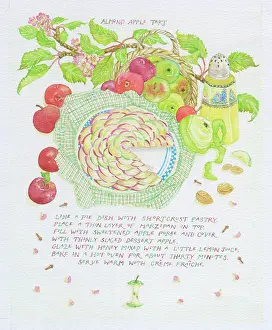 ALMOND APPLE TART
LINE A PIE DISH WITH SHORTCRUST PASTRY.
PLACE A THIN LAYER OF MARZIPAN ON TOP.
FILL WITH SWEETENED APPLE PUREE AND COVER
WITH THINLY SLICED DESSERT APPLE.
GLAZE WITH HONEY MIXED WITH A LITTLE LEMON JUICE.
BAKE IN A HOT OVEN FOR ABOUT THIRTY MINUTES.
SERVE WARM WITH CRÈME FRAÎCHE.